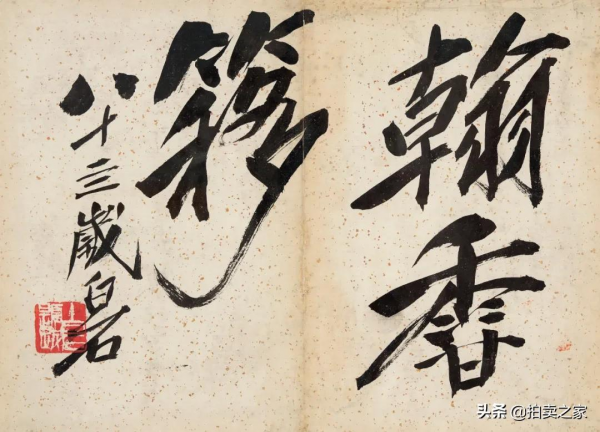 翰香
簃
八十三歲白石
头条 @拍卖之家